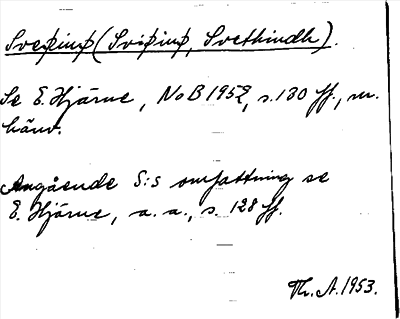 Sveþiuþ (Sviþiuþ, Svethiudh).
Se E. Hjärne, NoB 1952, s. 130 ff., m.
hänv.
Angående S:s omfattning se
E. Hjärne, a. a., s. 128 ff.
Th. A. 1953.